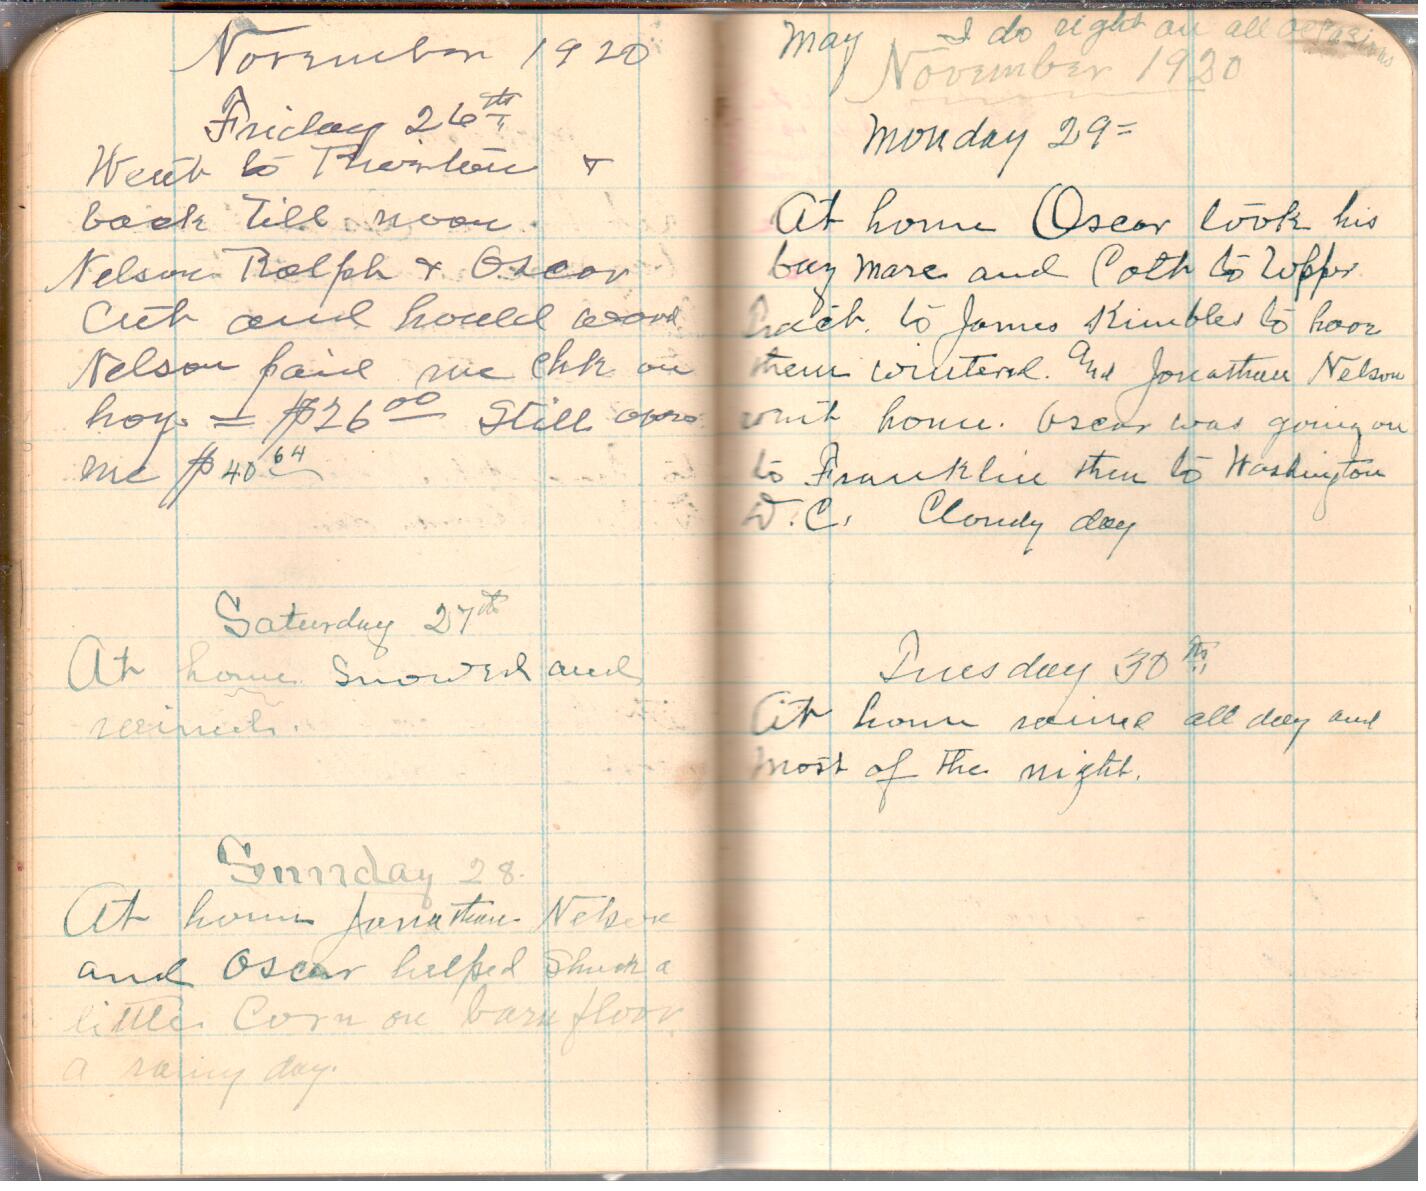 November 1920
Friday 26th
Went to Thornton &
back till noon.
Nelson Ralph & Oscar
Cut and hauld wood
Nelson paid me chk on
hay = $26 00 Still owes
me $40 64
Saturday 27th
At home snowed and
rained.
Sunday 28.
At home Jonathan Nelson
and Oscar helped Shuck a
little Corn on barn floor
a rainy day.
May I do right on all occasions
November 1920
Monday 29=
At home Oscar took his
bay mare and Colt to Upper
Tract. to James Kimbles to have
them wintered. and Jonathan Nelson
went home. Oscar was going on
to Franklin then to Washington
D.C. Cloudy day
Tuesday 30th
At home rained all day and
most of the night.